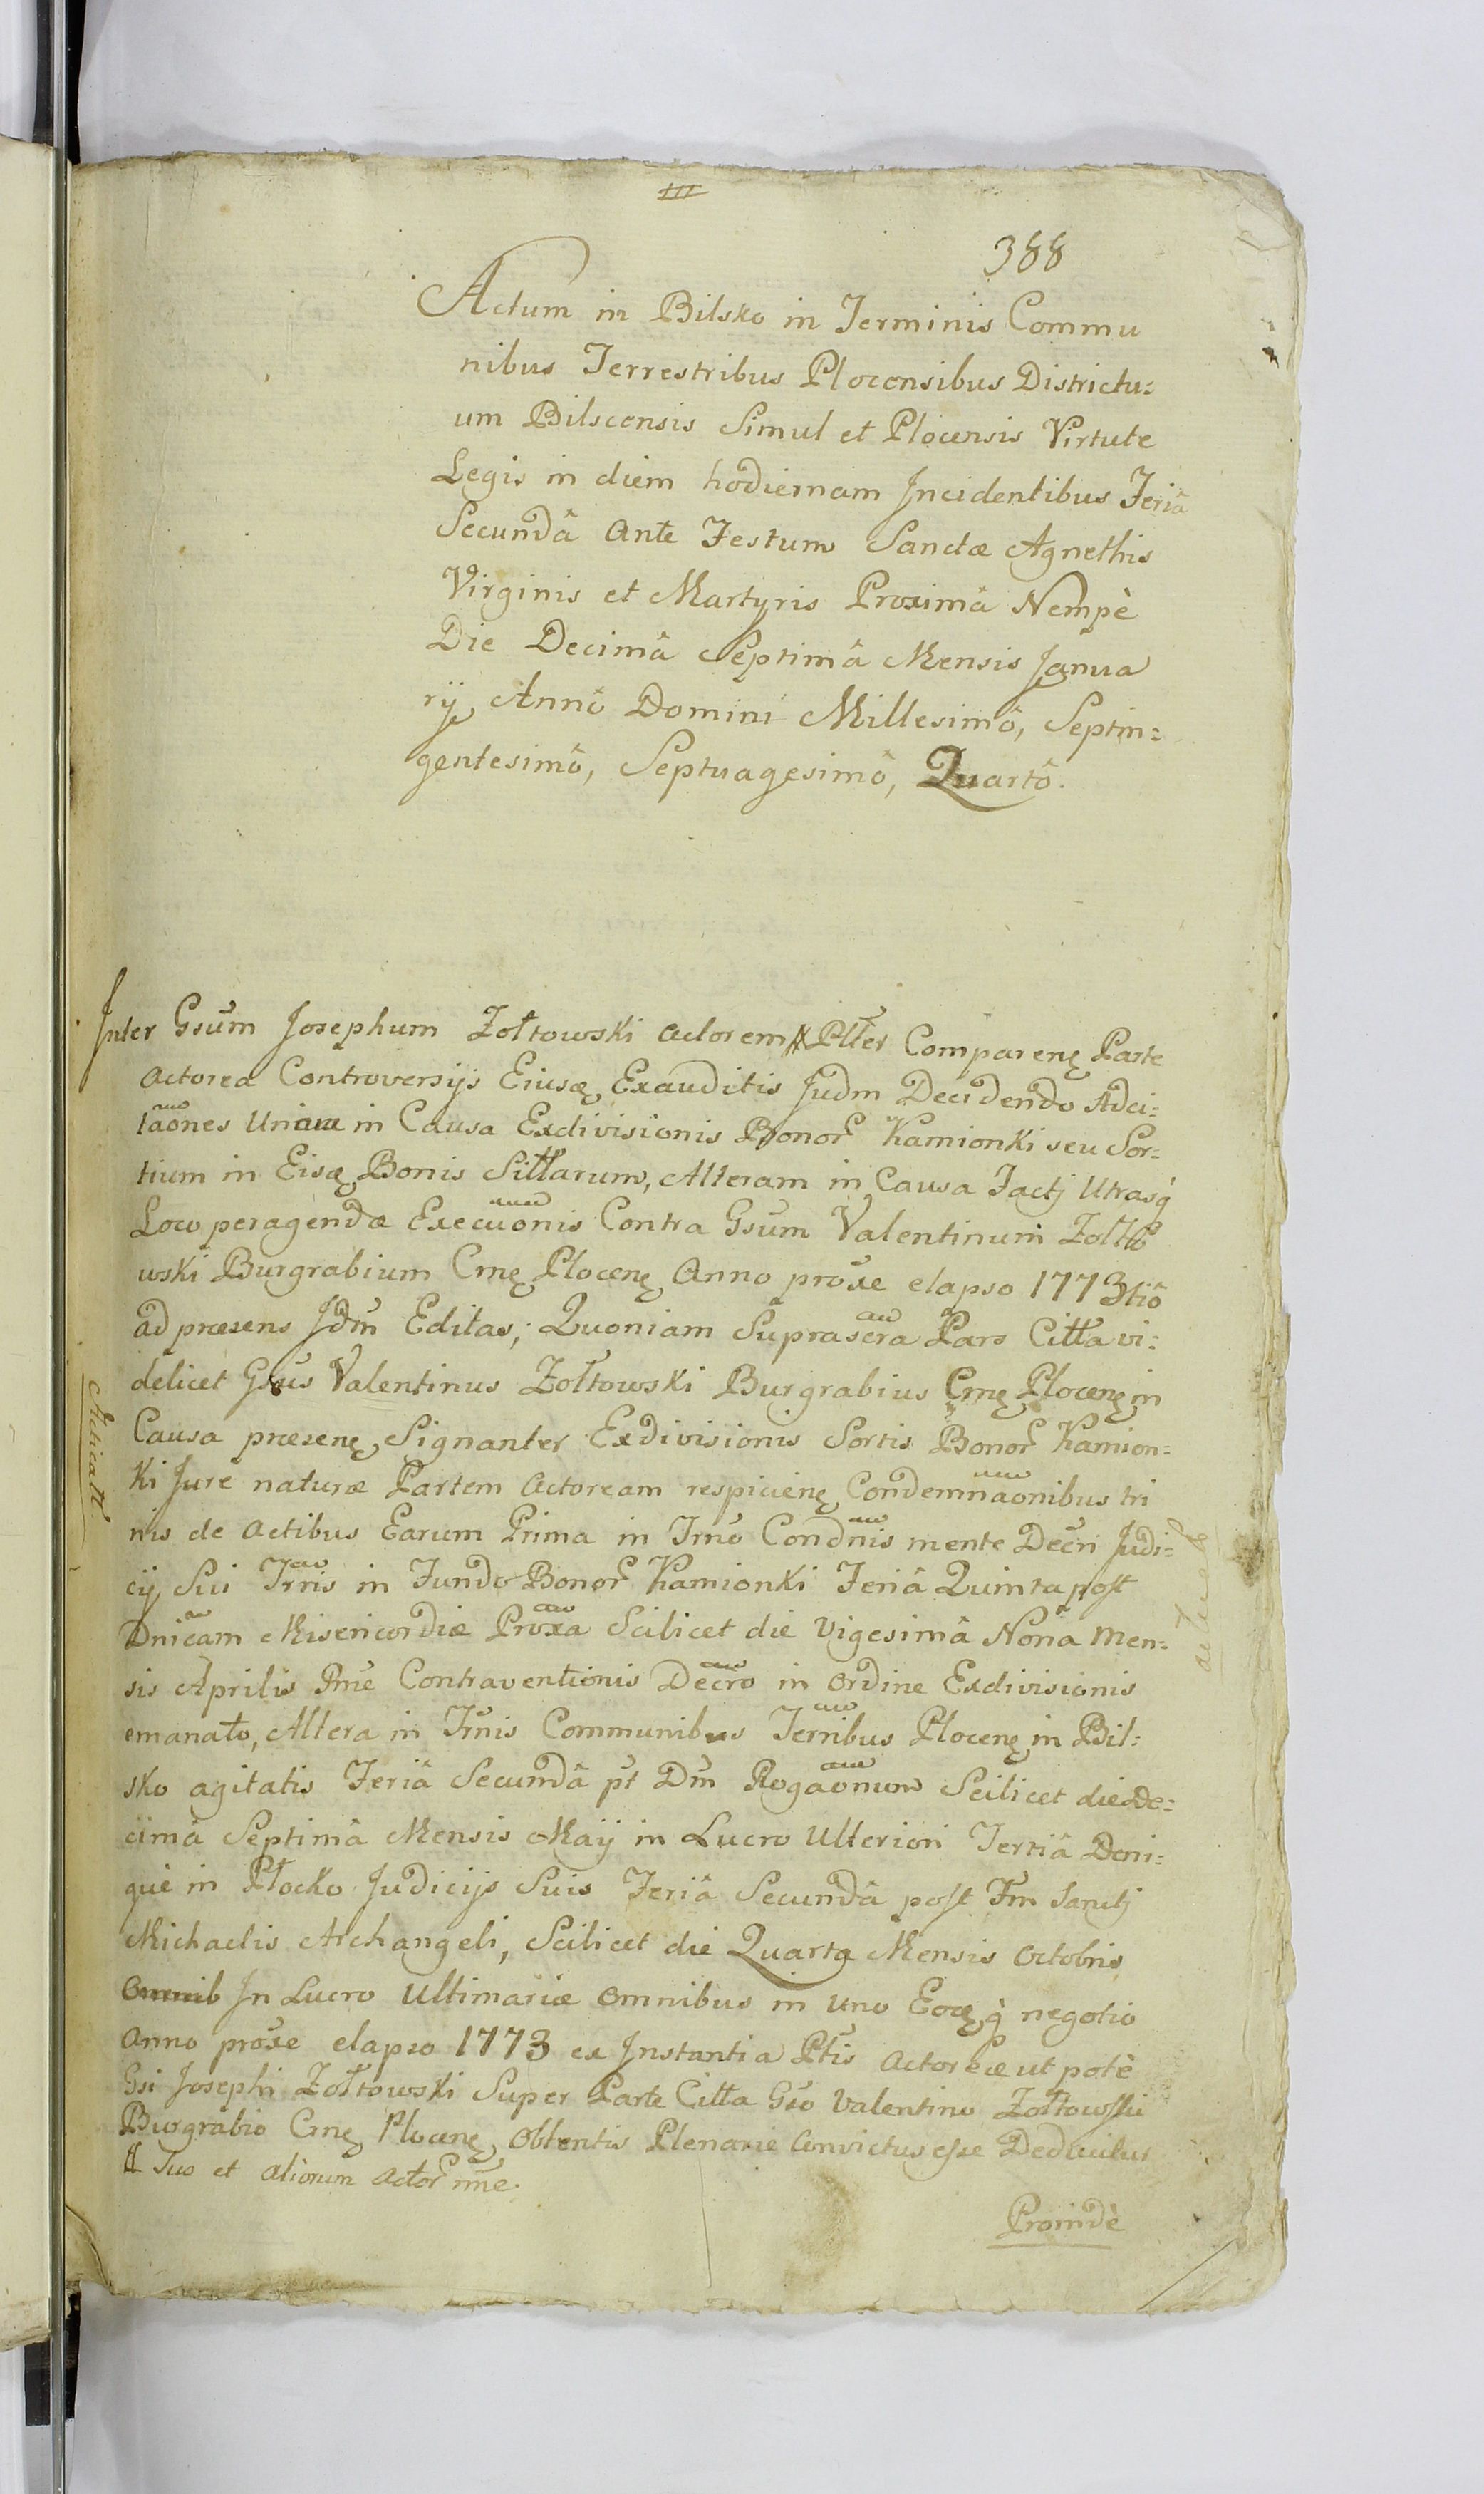 III
388
Actum in Bilsko in Terminis Commu
nibus Terrestribus Plocensibus Districtu:
um Bilscensis Simul et Plocensis Virtute
Legis in diem hodiernam Incidentibus Feriâ
Secundâ Ante Festum Sanctæ Agnethis
Virginis et Martyris Proximâ Nempè
Die Decimâ Septimâ Mensis Janua
rij Annô Domini Millesimô, Septin:
gentesimô, Septuagesimô, Quartô.
Inter Gsum Josephum Zołtowski Actorem # Ptter Comparenę Parte
Actorea Controversijs Eiusdę Exauditis Judm Decidendo Adci:
taōnes Unam in Causa Exdivisionis Bonor Kamionki seu Sor:
tium in Eisdę Bonis Sittarum, Alteram in Causa Factj Utrasq̀
Loco peragendæ Execuōnis Contra Gsum Valentinum Zołto
wski Burgrabium Crnę Plocenę Anno proxe elapso 1773tiô
ad præsens Jdm Editas; Quoniam Suprascra Pars Citta vi:
delicet Gsus Valentinus Zołtowski Burgrabius Crnę Plocenę in
Causa præsenę Signanter Exdivisionis Sortis Bonor Kamion:
ki Jure naturæ Partem Actoream respicienę Condemnaōnibus tri
nis de Actibus Earum Prima in Trno Condnis mente Decri Judi:
cij Sui Trris in Fundo Bonor Kamionki Feriâ Quinta post
Dnicam Misericordiæ Proxa Scilicet die Vigesimâ Nona Men:
sis Aprilis Pme Contraventionis Decro in Ordine Exdivisionis
emanato, Altera in Trnis Communibus Terribus Plocenę in Bil:
sko agitatis Feriâ Secundâ pt Dm Rogaōnum Scilicet die De:
cimâ Septimâ Mensis Maij in Lucro Ulteriori Tertiâ Deni:
què in Płocko Judicijs Suis Feriâ Secundâ post Fm Sanctj
Michaelis Archangeli, Scilicet die Quarta Mensis Octobris
Omnib In Lucro Ultimariæ Omnibus in Uno Eodęq̀ negotio
Anno proxe elapso 1773 ex Instantia Ptis Actoreæ ut potè
Gsi Josephi Zołtowski Super Parte Citta Gso Valentino Zołtowski
Burgrabio Crnę Plocenę Obtentis Plenarie Convictus esse Deducitur
# Suo et aliorum Actor nne.
Proindè